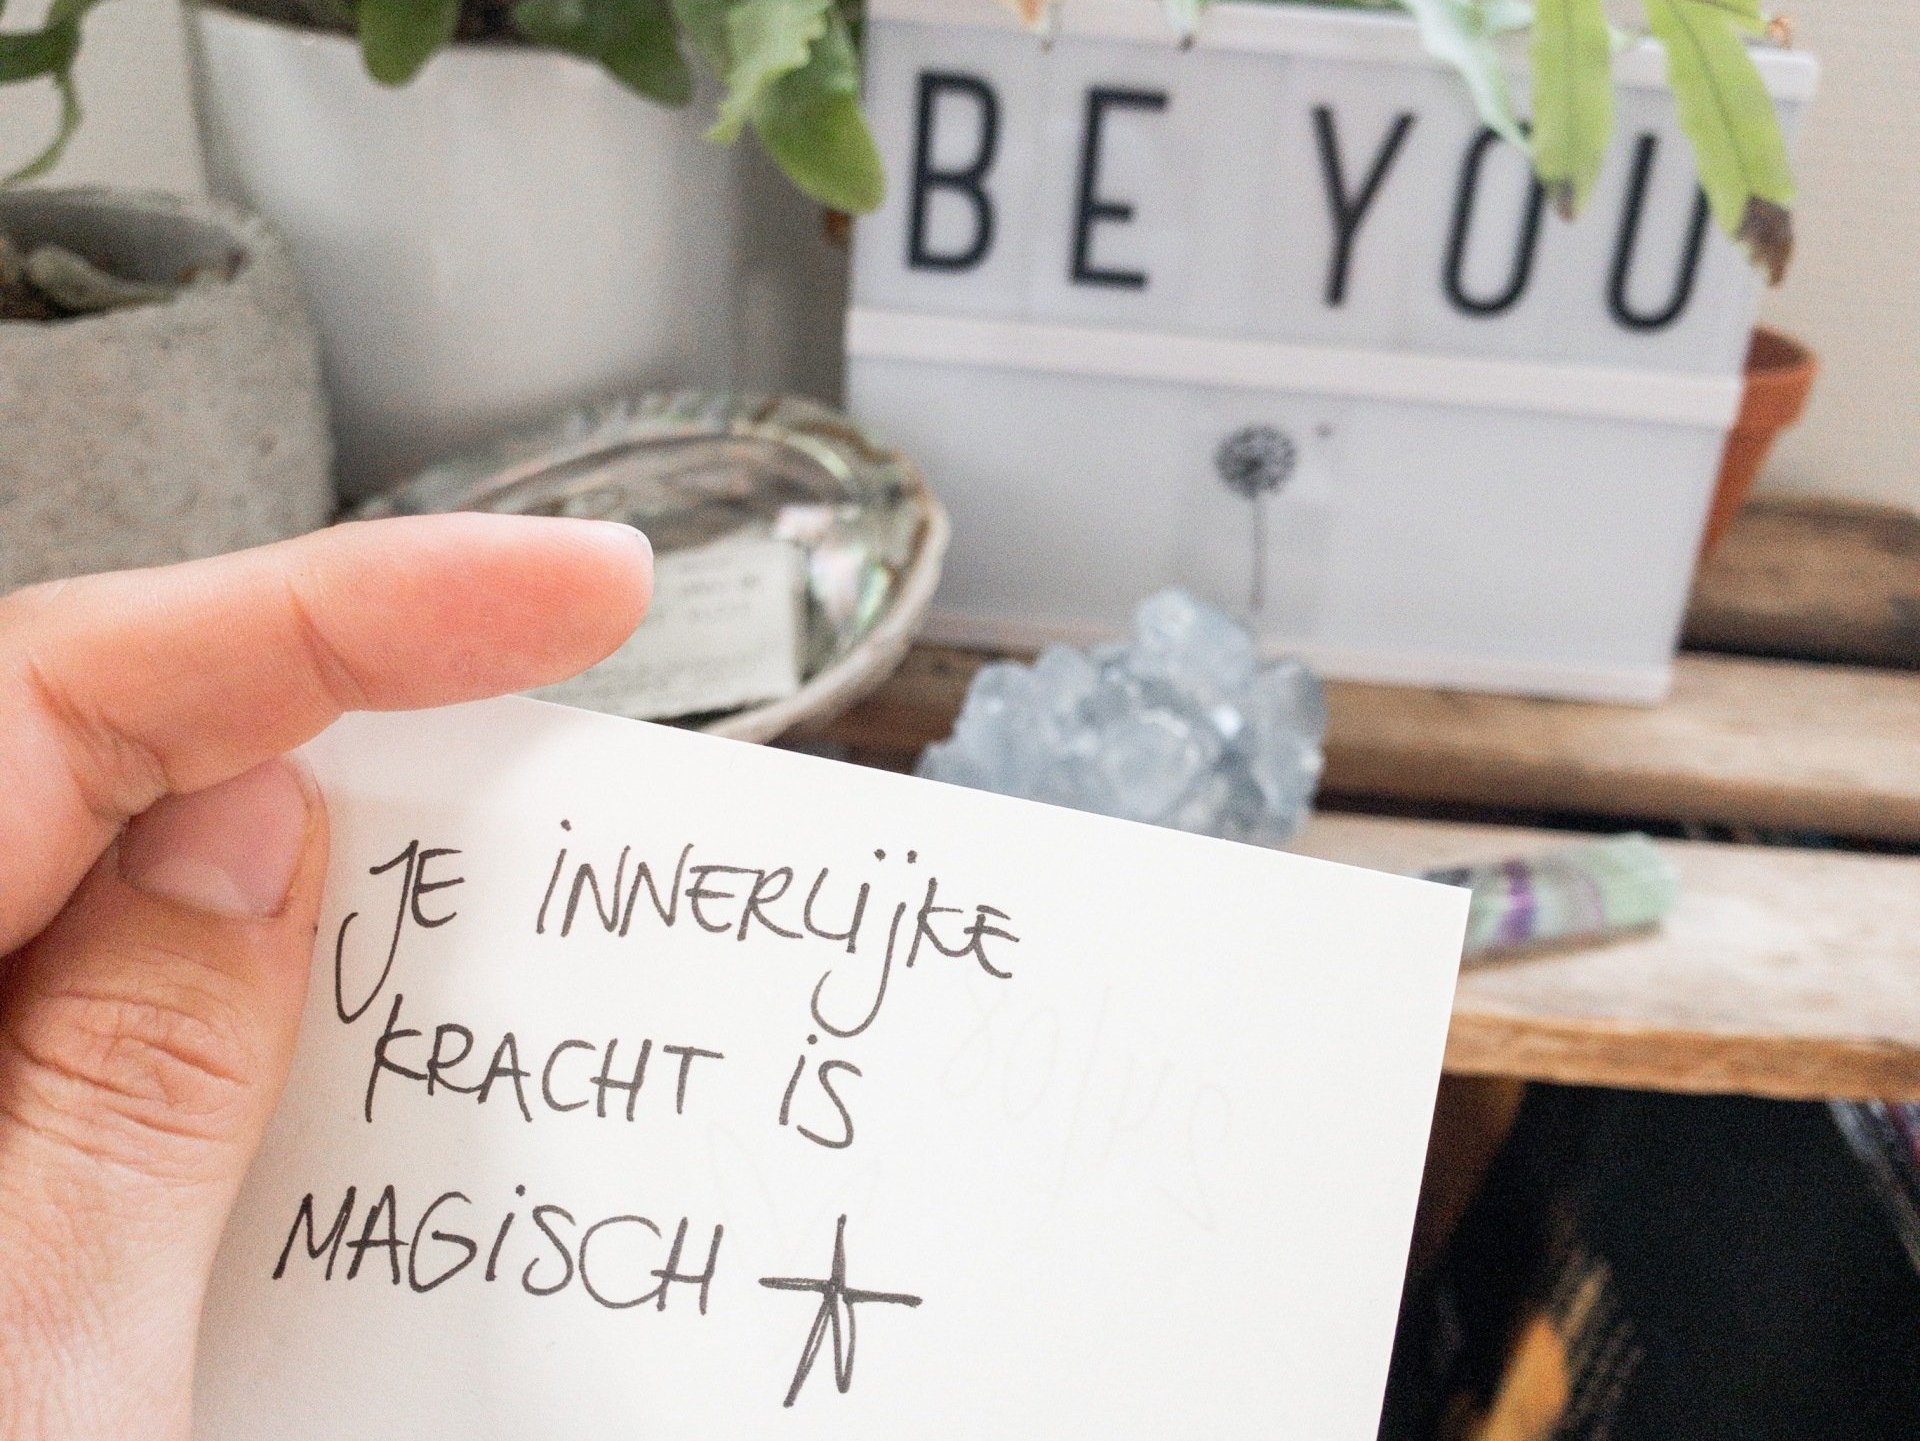 BE YOU
JE iNNERLijKE
KRACHT iS
MAGiSCH